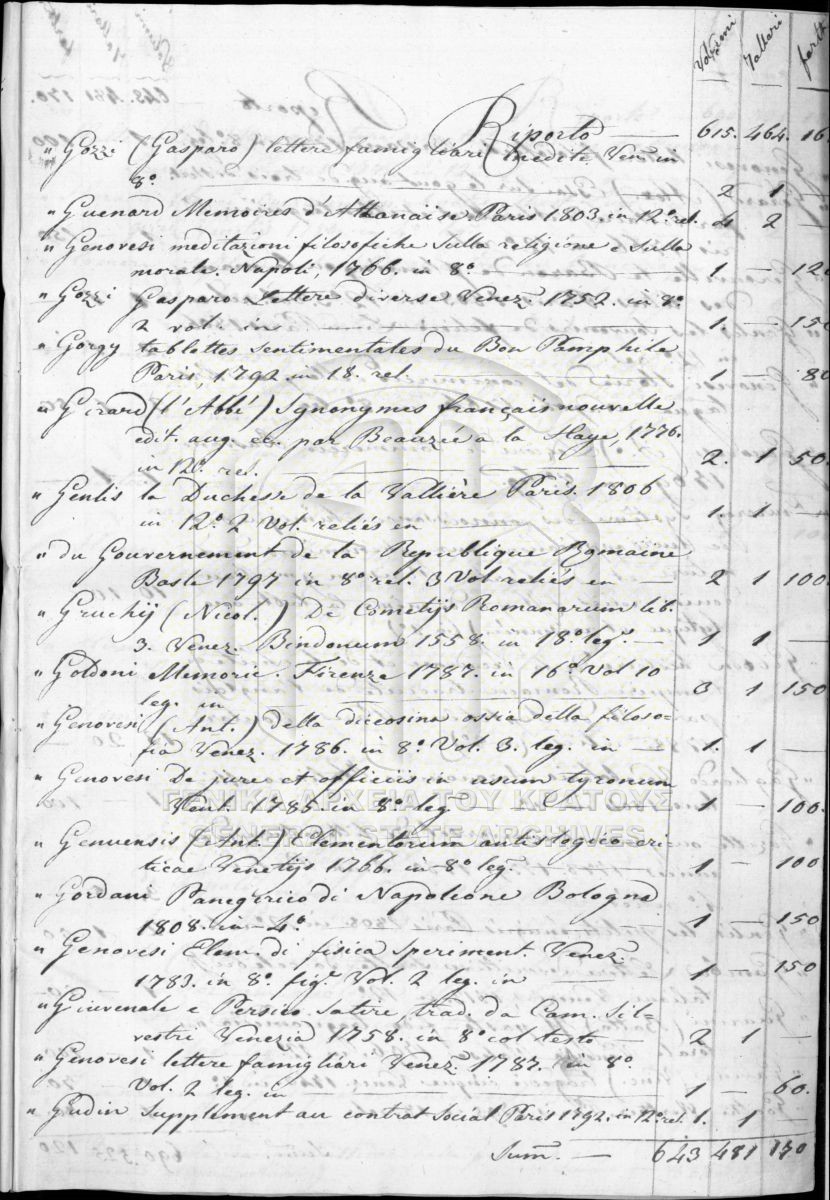 Volumi Tallari parà
Riporto — 615. 464. 16
" Gozzi (Gasparo) lettere famigliari inedite Ven. in
8.° — 2 1 —
" Guenard Memoires d'Athanaise Paris 1803. in 12.° rel. 4 2 —
" Genovesi meditazioni filosofiche sulla religione e sulla
morale. Napoli, 1766. in 8.° — 1 — 120
" Gozzi Gasparo Lettere diverse Venez. 1752. in 8.°
2 vol. in — 1. — 150
" Gorgy tablettes sentimentales du Bon Pamphile
Paris, 1792 in 18. rel. — 1 — 80
" Girard (l'Abbé) Synonymes français nouvelle
edit. aug. ec. par Beauzée a la Haye, 1776.
in 12.° rel. — 2. 1 50.
" Genlis la Duchesse de la Vallière Paris. 1806
in 12.° 2 Vol. reliés en 1. 1 —
" du Gouvernement de la Republique Romaine
Basle 1797 in 8.° rel. 3 Vol reliés en — 2 1 100.
" Gruchij (Nicol.) De Comitijs Romanorum lib.
3. Venez. Bindonum 1558. in 18.° leg.° — 1 1 —
" Goldoni Memorie. Firenze 1787. in 16.° Vol 10
leg. in — 3 1 150
" Genovesi (Ant.) della diceosina ossia della filoso=
fia Venez. 1786. in 8.° Vol. 3. leg. in — 1. 1 —
" Genovesi De jure et officiis in usum tyronum
Vent. 1785 in 8.° leg — 1 — 100.
ΓΕΝΙΚΑ ΑΡΧΕΙΑ ΤΟΥ ΚΡΑΤΟΥΣ
GENERAL STATE ARCHIVES
" Genuensis (Ant.) Elementorum artis logico cri
ticae Venetijs 1766. in 8.° leg.° — 1 — 100
" Gordani Panegirico di Napoleone Bologna
1808. in 4.° — 1 — 150
" Genovesi Elem. di fisica speriment. Venez.
1783. in 8.° fig.° Vol. 2 leg. in — 1 — 150
" Giuvenale e Persico satire, trad. da Cam. Sil=
vestri Venezia 1758. in 8.° col testo — 2 1 —
" Genovesi lettere famigliari Venez. 1787. in 8.°
Vol. 2 leg. in — 1 — 60.
" Gudin Supplement au contrat social Paris 1792. in 12.° rel. 1. 1 —
Sum. — 643 481 170